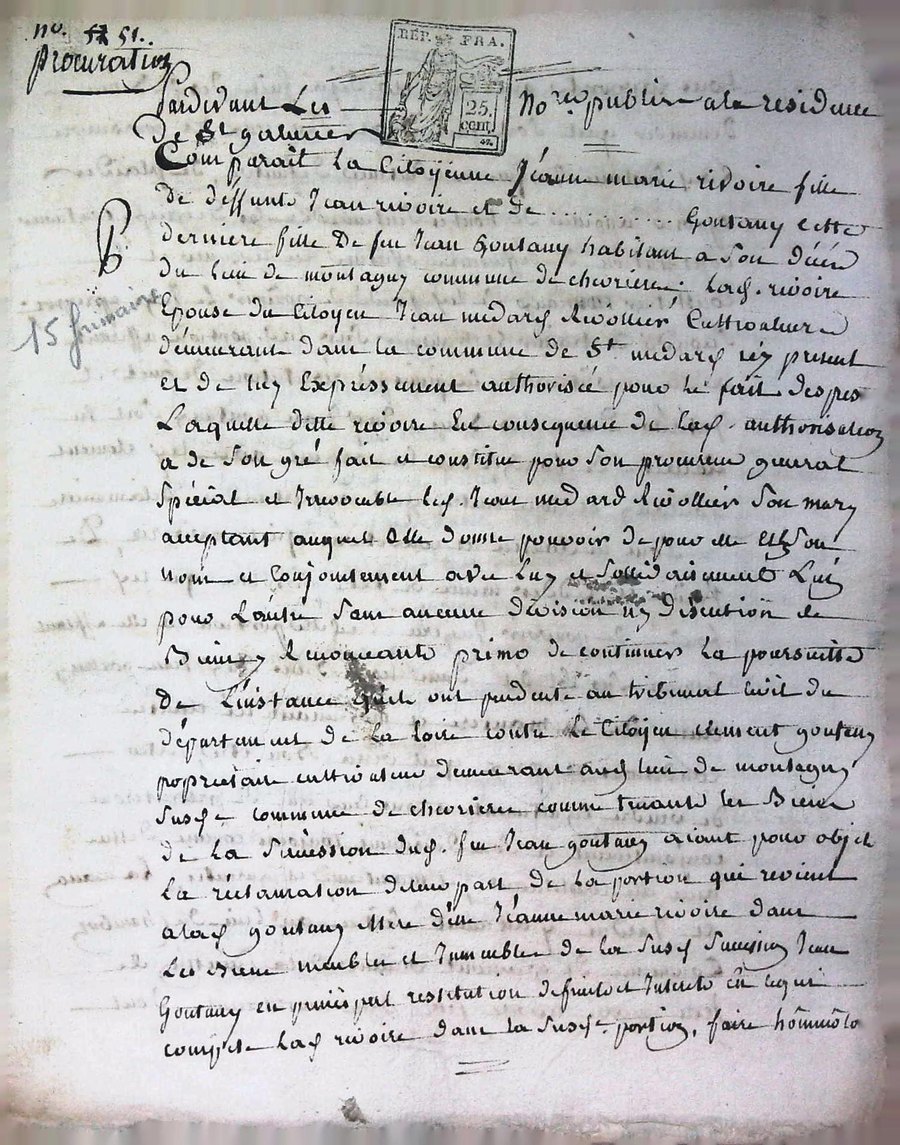 no. 51.
procuration
REP. FRA.
25.
cent.
Pardevant Les no.res publics a la residence
De St galmier
Comparait La Citoÿenne Jéanne marie rivoire fille
De déffunts Jean rivoire et de ........... Goutany cette
derniere fille De feu Jean Goutany habitant a son décéd
Du lieu de montagny commune de chevrieres. Lad. rivoire
Epouse du Citoyen Jean medard Rivollier Cultivateur
démeurant dans la commune de St medard icy present
et de luy Expréssement authorisée pour le fait des ptes
Laquelle ditte rivoire En consequence de lad. authorisation
a de son gré fait et constitue pour son procureur general
spécial et Irrevocable led. Jean medard Rivollier son mary
acceptant auquel Elle donne pouvoir de pour elle et son
nom et Conjointement avec Luy et sollidairement L'un
pour L'autre sans aucune division ny discution de
Biens y Renonceants primo de continuer La poursuitte
De L'instance qu'ils ont pendente au tribunal civil du
départemt de La Loire contre Le Citoyen clement goutany
propriétaire cultivateur demeurant aud. lieu de montagny
susd. commune de chevrieres comme tenants les Biens
de La succession dud. feu Jean goutany aiant pour objet
La réclamation de La portion qui revient
a lad. goutany Mere d'elle Jéanne marie rivoire dans
Les Biens meubles et Immeubles de la susd. succession Jean
Goutany en principal restitution de fruits et Interets
compete Lad. rivoire dans la susd. portion, faire hômmolo
15 frimaire